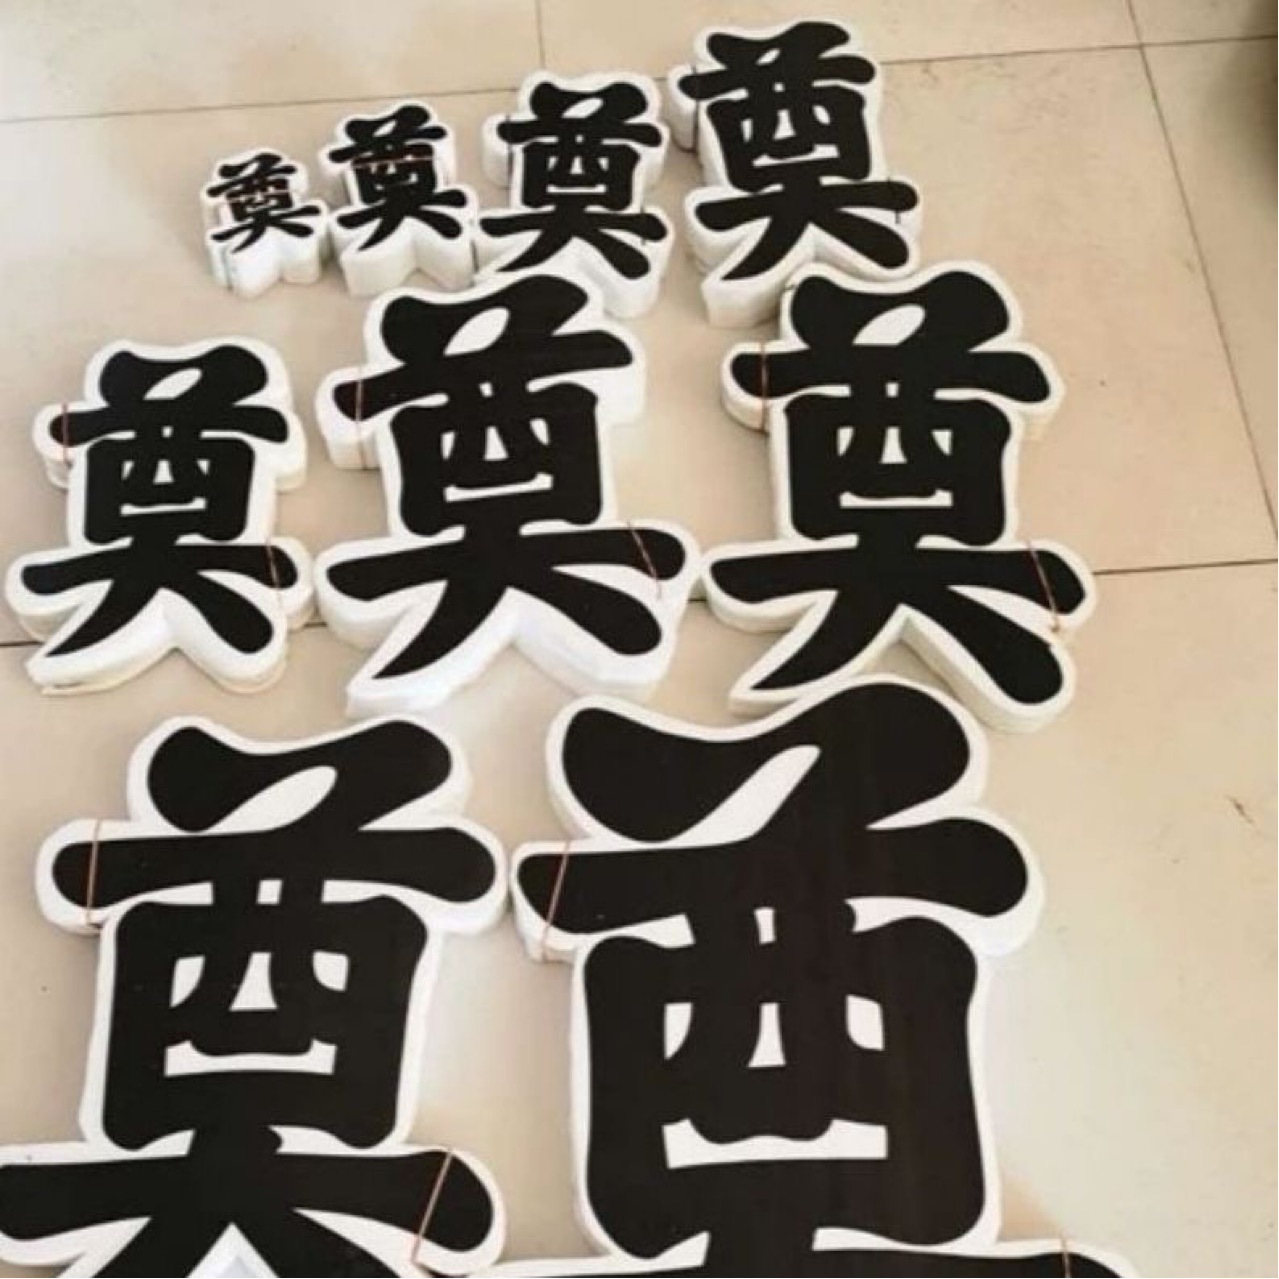 奠 奠 奠 奠
奠 奠 奠
奠 奠